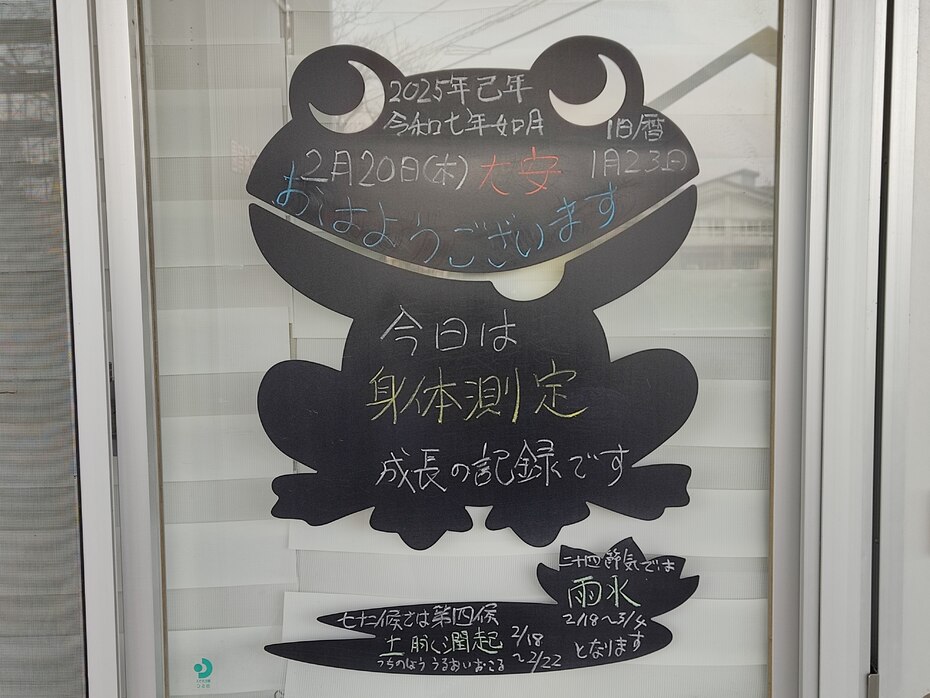 2025年己年
令和七年如月
旧暦
2月20日(木) 大安 1月23日
おはようございます
今日は
身体測定
成長の記録です
二十四節気では
雨水
2/18〜3/4
となります
七十二候では第四候
土脉潤起
つちのしょう うるおいおこる
2/18
〜2/22